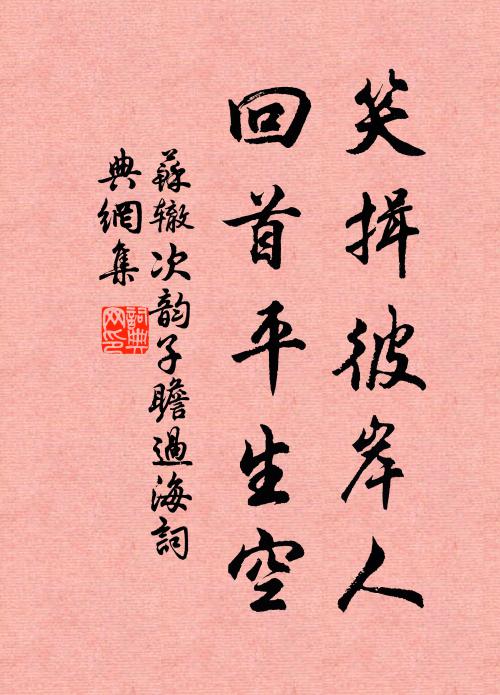 笑揖彼岸人
回首平生空
蘇辙次韵子瞻過海詞
典網集
詞典
网印